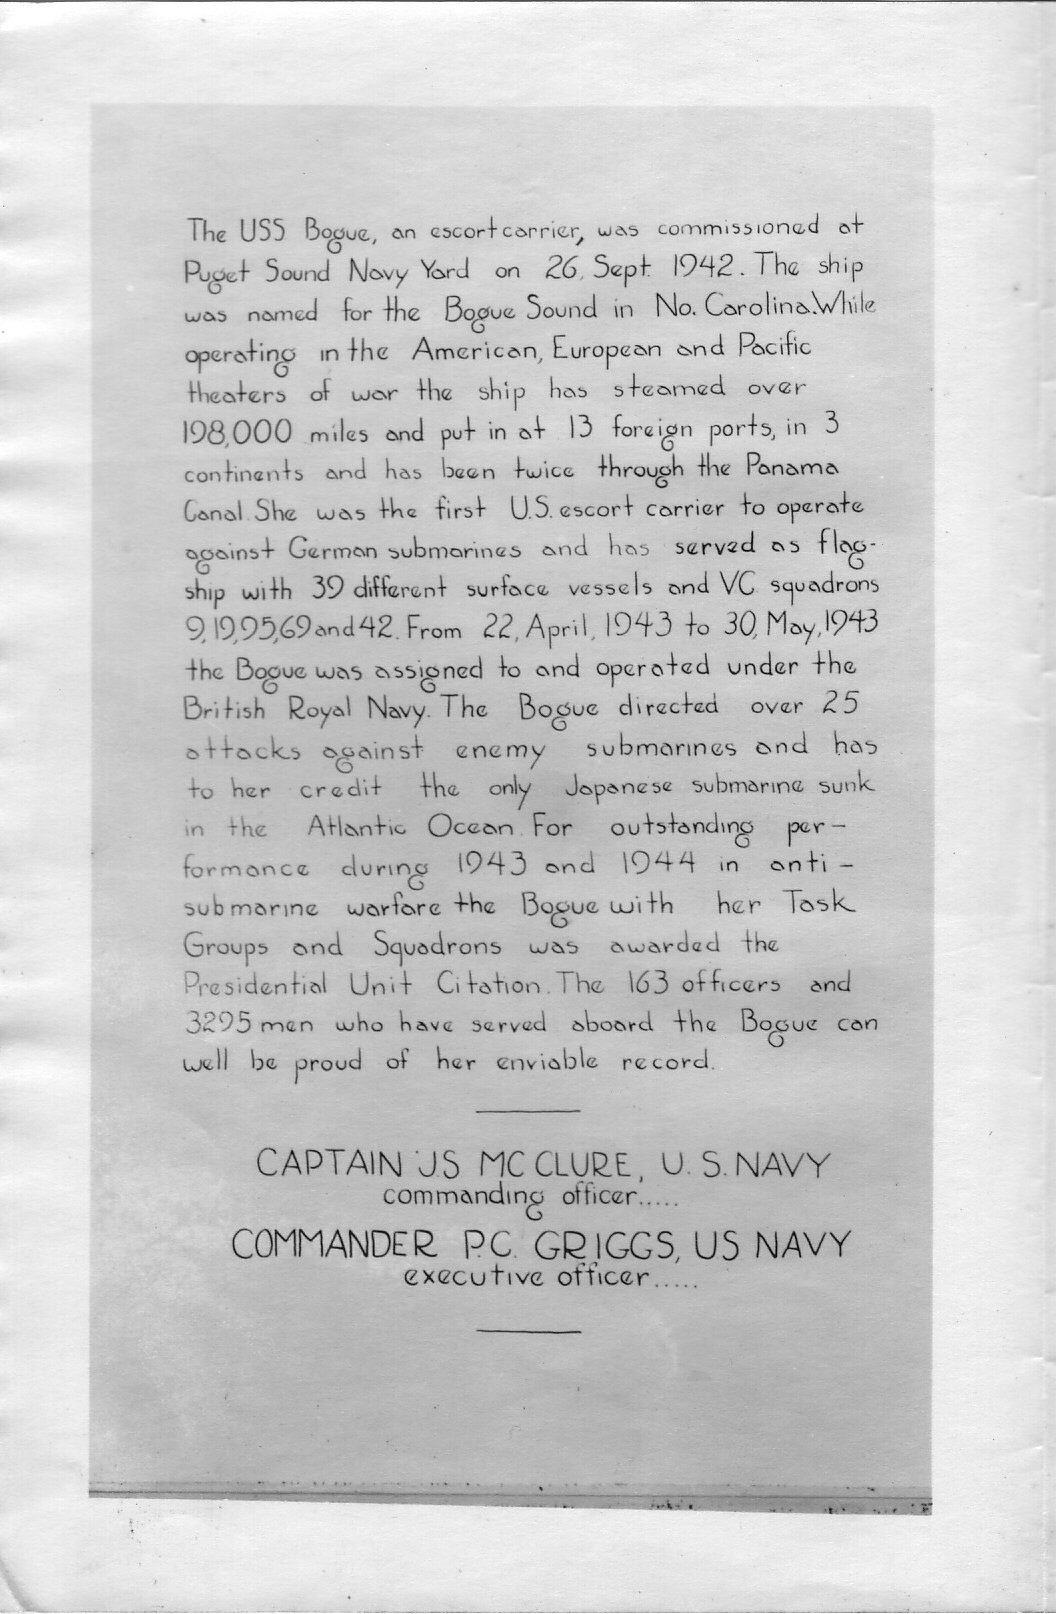 The USS Bogue, an escort carrier, was commissioned at
Puget Sound Navy Yard on 26, Sept. 1942. The ship
was named for the Bogue Sound in No. Carolina. While
operating in the American, European and Pacific
theaters of war the ship has steamed over
198,000 miles and put in at 13 foreign ports, in 3
continents and has been twice through the Panama
Canal. She was the first U.S. escort carrier to operate
against German submarines and has served as flag-
ship with 39 different surface vessels and VC squadrons
9, 19, 95, 69 and 42. From 22, April, 1943 to 30, May, 1943
the Bogue was assigned to and operated under the
British Royal Navy. The Bogue directed over 25
attacks against enemy submarines and has
to her credit the only Japanese submarine sunk
in the Atlantic Ocean. For outstanding per-
formance during 1943 and 1944 in anti-
submarine warfare the Bogue with her Task
Groups and Squadrons was awarded the
Presidential Unit Citation. The 163 officers and
3295 men who have served aboard the Bogue can
well be proud of her enviable record.
CAPTAIN JS MC CLURE, U.S. NAVY
commanding officer.....
COMMANDER P.C. GRIGGS, US NAVY
executive officer.....